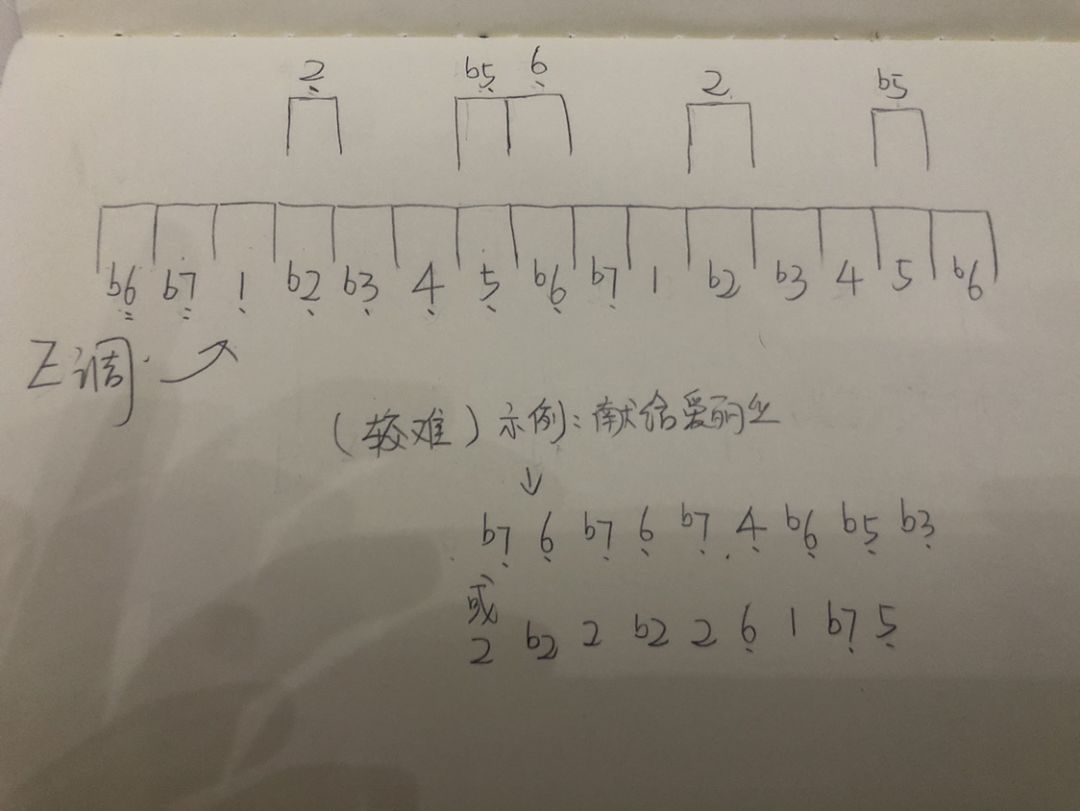 2̣ b5̣ 6̣ 2 b5
b6̤ b7̤ 1̣ b2̣ b3̣ 4̣ 5̣ b6̣ b7̣ 1 b2 b3 4 5 b6
(较难) 示例: 献给爱丽丝
↓
b7̣ 6̣ b7̣ 6̣ b7̣ 4̣ b6̣ b5̣ b3̣
或
2 b2 2 b2 2 6̣ 1 b7̣ 5̣